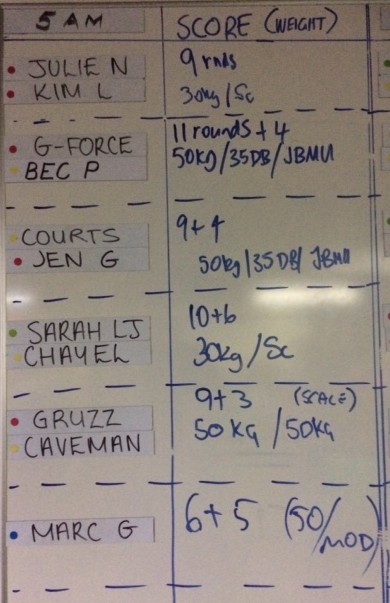 5 AM SCORE (WEIGHT)
JULIE N 9 rnds
KIM L 30kg/Sc
G-FORCE 11 rounds + 4
BEC P 50KG/35DB/JBMU
COURTS 9+4
JEN G 50kg/35DB/JBMU
SARAH LJ 10+6
CHAYEL 30kg/Sc
GRUZZ 9+3 (SCALE)
CAVEMAN 50KG/50KG
MARC G 6+5 (50/
MOD)